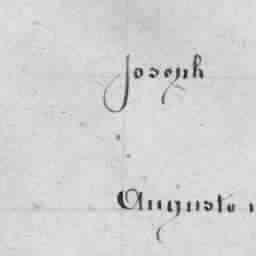 Joseph
Auguste